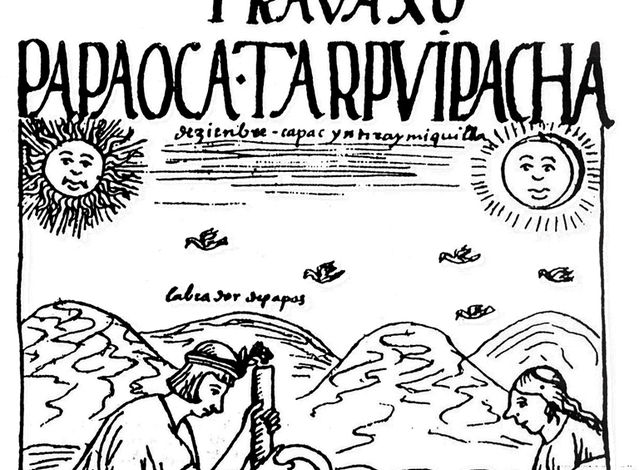 TRAVAXO
PAPAOCA·TARPVIPACHA
dezienbre - capac yntiraymiquilla
labrador depapas